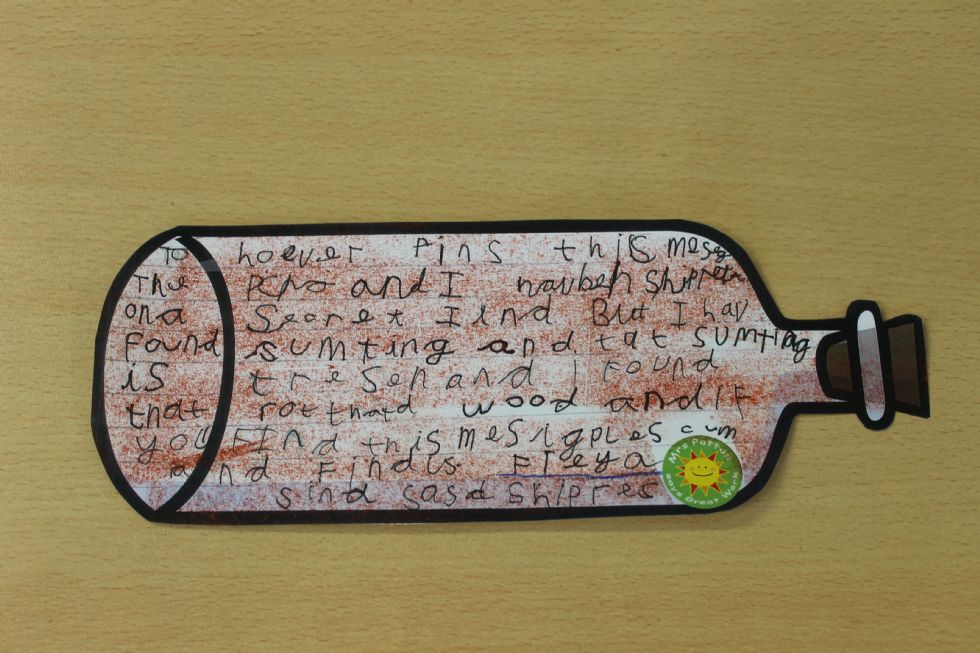 To hoever fins this messg
The Peno and I havbeh Shipretn
on a Secret Ilnd But I hav
Found sumting and tat sumting
is treSen and I Found
that rotthatd wood and If
you FInd this mesigples cum
and Find us Fleya
sind casd Shipres
Mrs Pattu
says Great Work